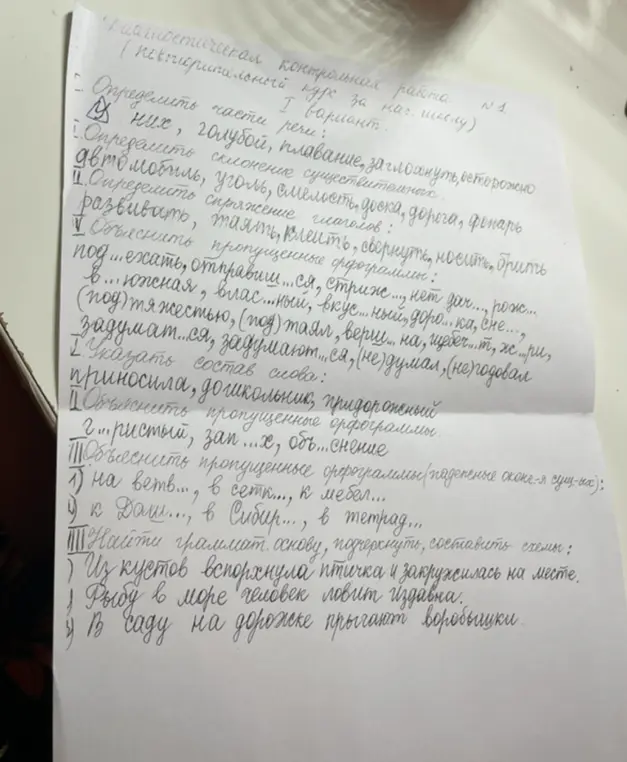 Диагностическая контрольная работа №1
(повторительный курс за нач. школу)
I вариант.
I Определить части речи:
них, голубой, плавание, заглохнуть, осторожно
Определить склонение существительных.
автомобиль, уголь, смелость, доска, дорога, фонарь
Определить спряжение глаголов:
развивать, таять, клеить, свернуть, носить, брить
Объяснить пропущенные орфограммы:
под...ехать, отправиш...ся, стриж..., нет дач..., рож...
в...южная, влас...ный, вкус...ный, доро...ка, сне...,
(под)тяжестью, (под)таял, верш...на, щебеч...т, ж...ри,
задумат...ся, задумают...ся, (не)думал, (не)годовал
Указать состав слова:
приносила, дошкольник, придорожный
Объяснить пропущенные орфограммы.
г...ристый, зап...х, объ...снение
III Объяснить пропущенные орфограммы (падежные оконч-я сущ-ых):
1) на ветв..., в сетк..., к мебел...
к Даш..., в Сибир..., в тетрад...
IIII Найти граммат. основу, подчеркнуть, составить схемы:
) Из кустов вспорхнула птичка и закружилась на месте.
) Рыбу в море человек ловит издавна.
) В саду на дорожке прыгают воробьишки